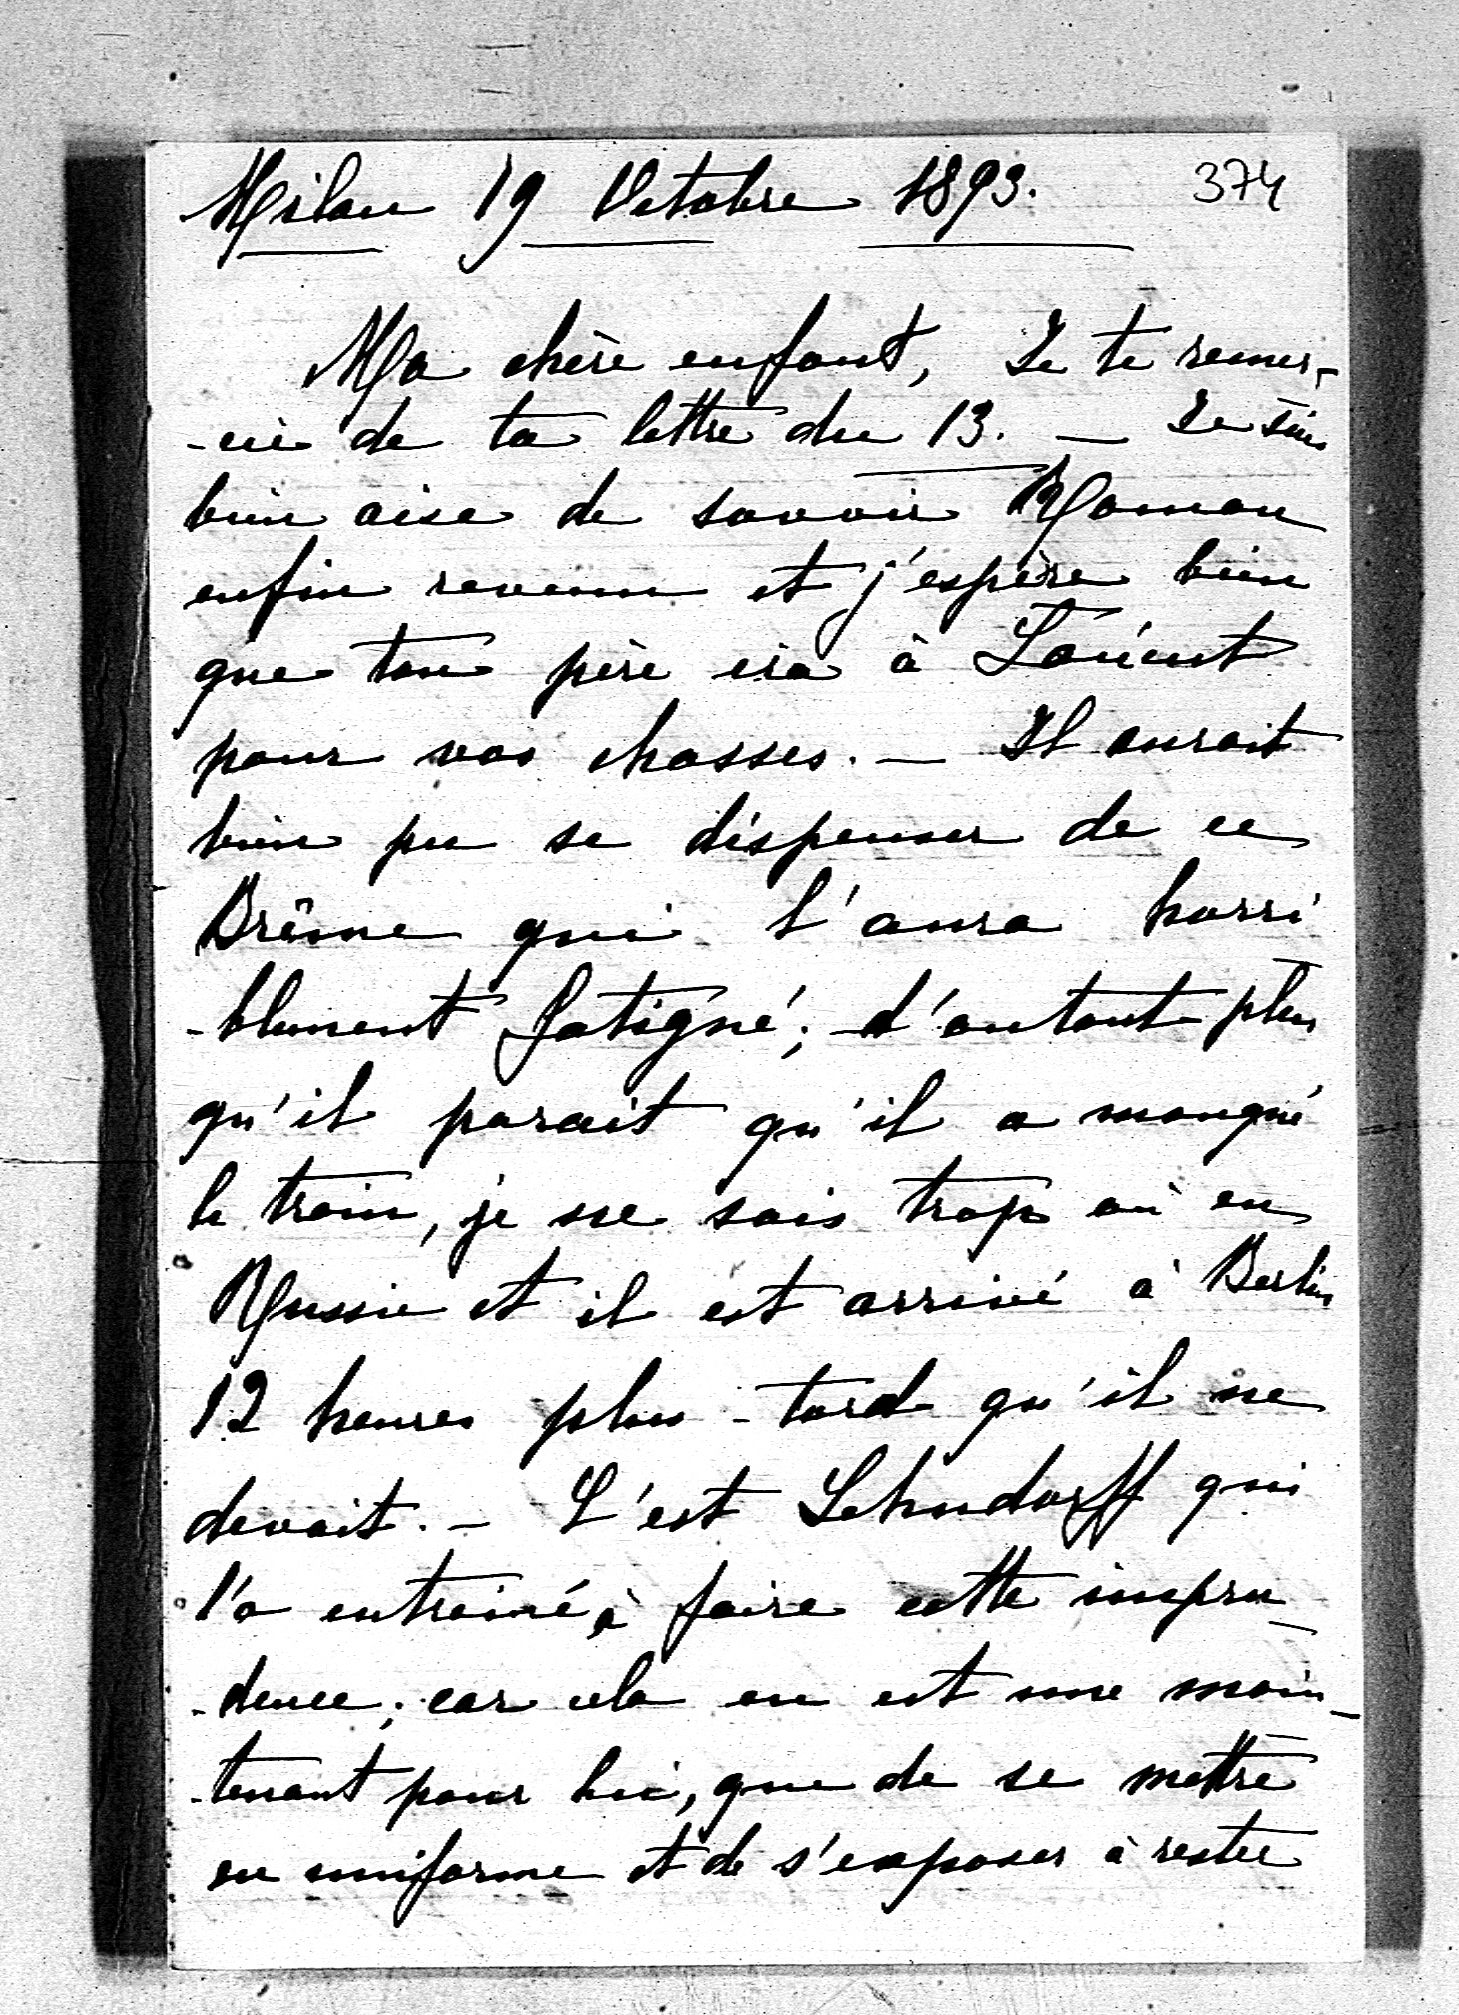 Milan 19 Octobre 1893. 374
Ma chère enfant, Je te remer-
-cie de ta lettre du 13. — Je suis
bien aise de savoir Roman
enfin revenu et j'espère bien
que ton père ira à Łańcut
pour vos chasses. — Il aurait
bien pu se dispenser de ce
Brême qui l'aura horri
-blement fatigué; d'autant plus
qu'il parait qu'il a manqué
le train, je ne sais trop où en
Russie et il est arrivé à Berlin
12 heures plus-tard qu'il ne
devait. — C'est Lehndorff qui
l'a entrainé à faire cette impru-
-dence; car cela en est une main-
-tenant pour lui, que de se mettre
en uniforme et de s'exposer à rester